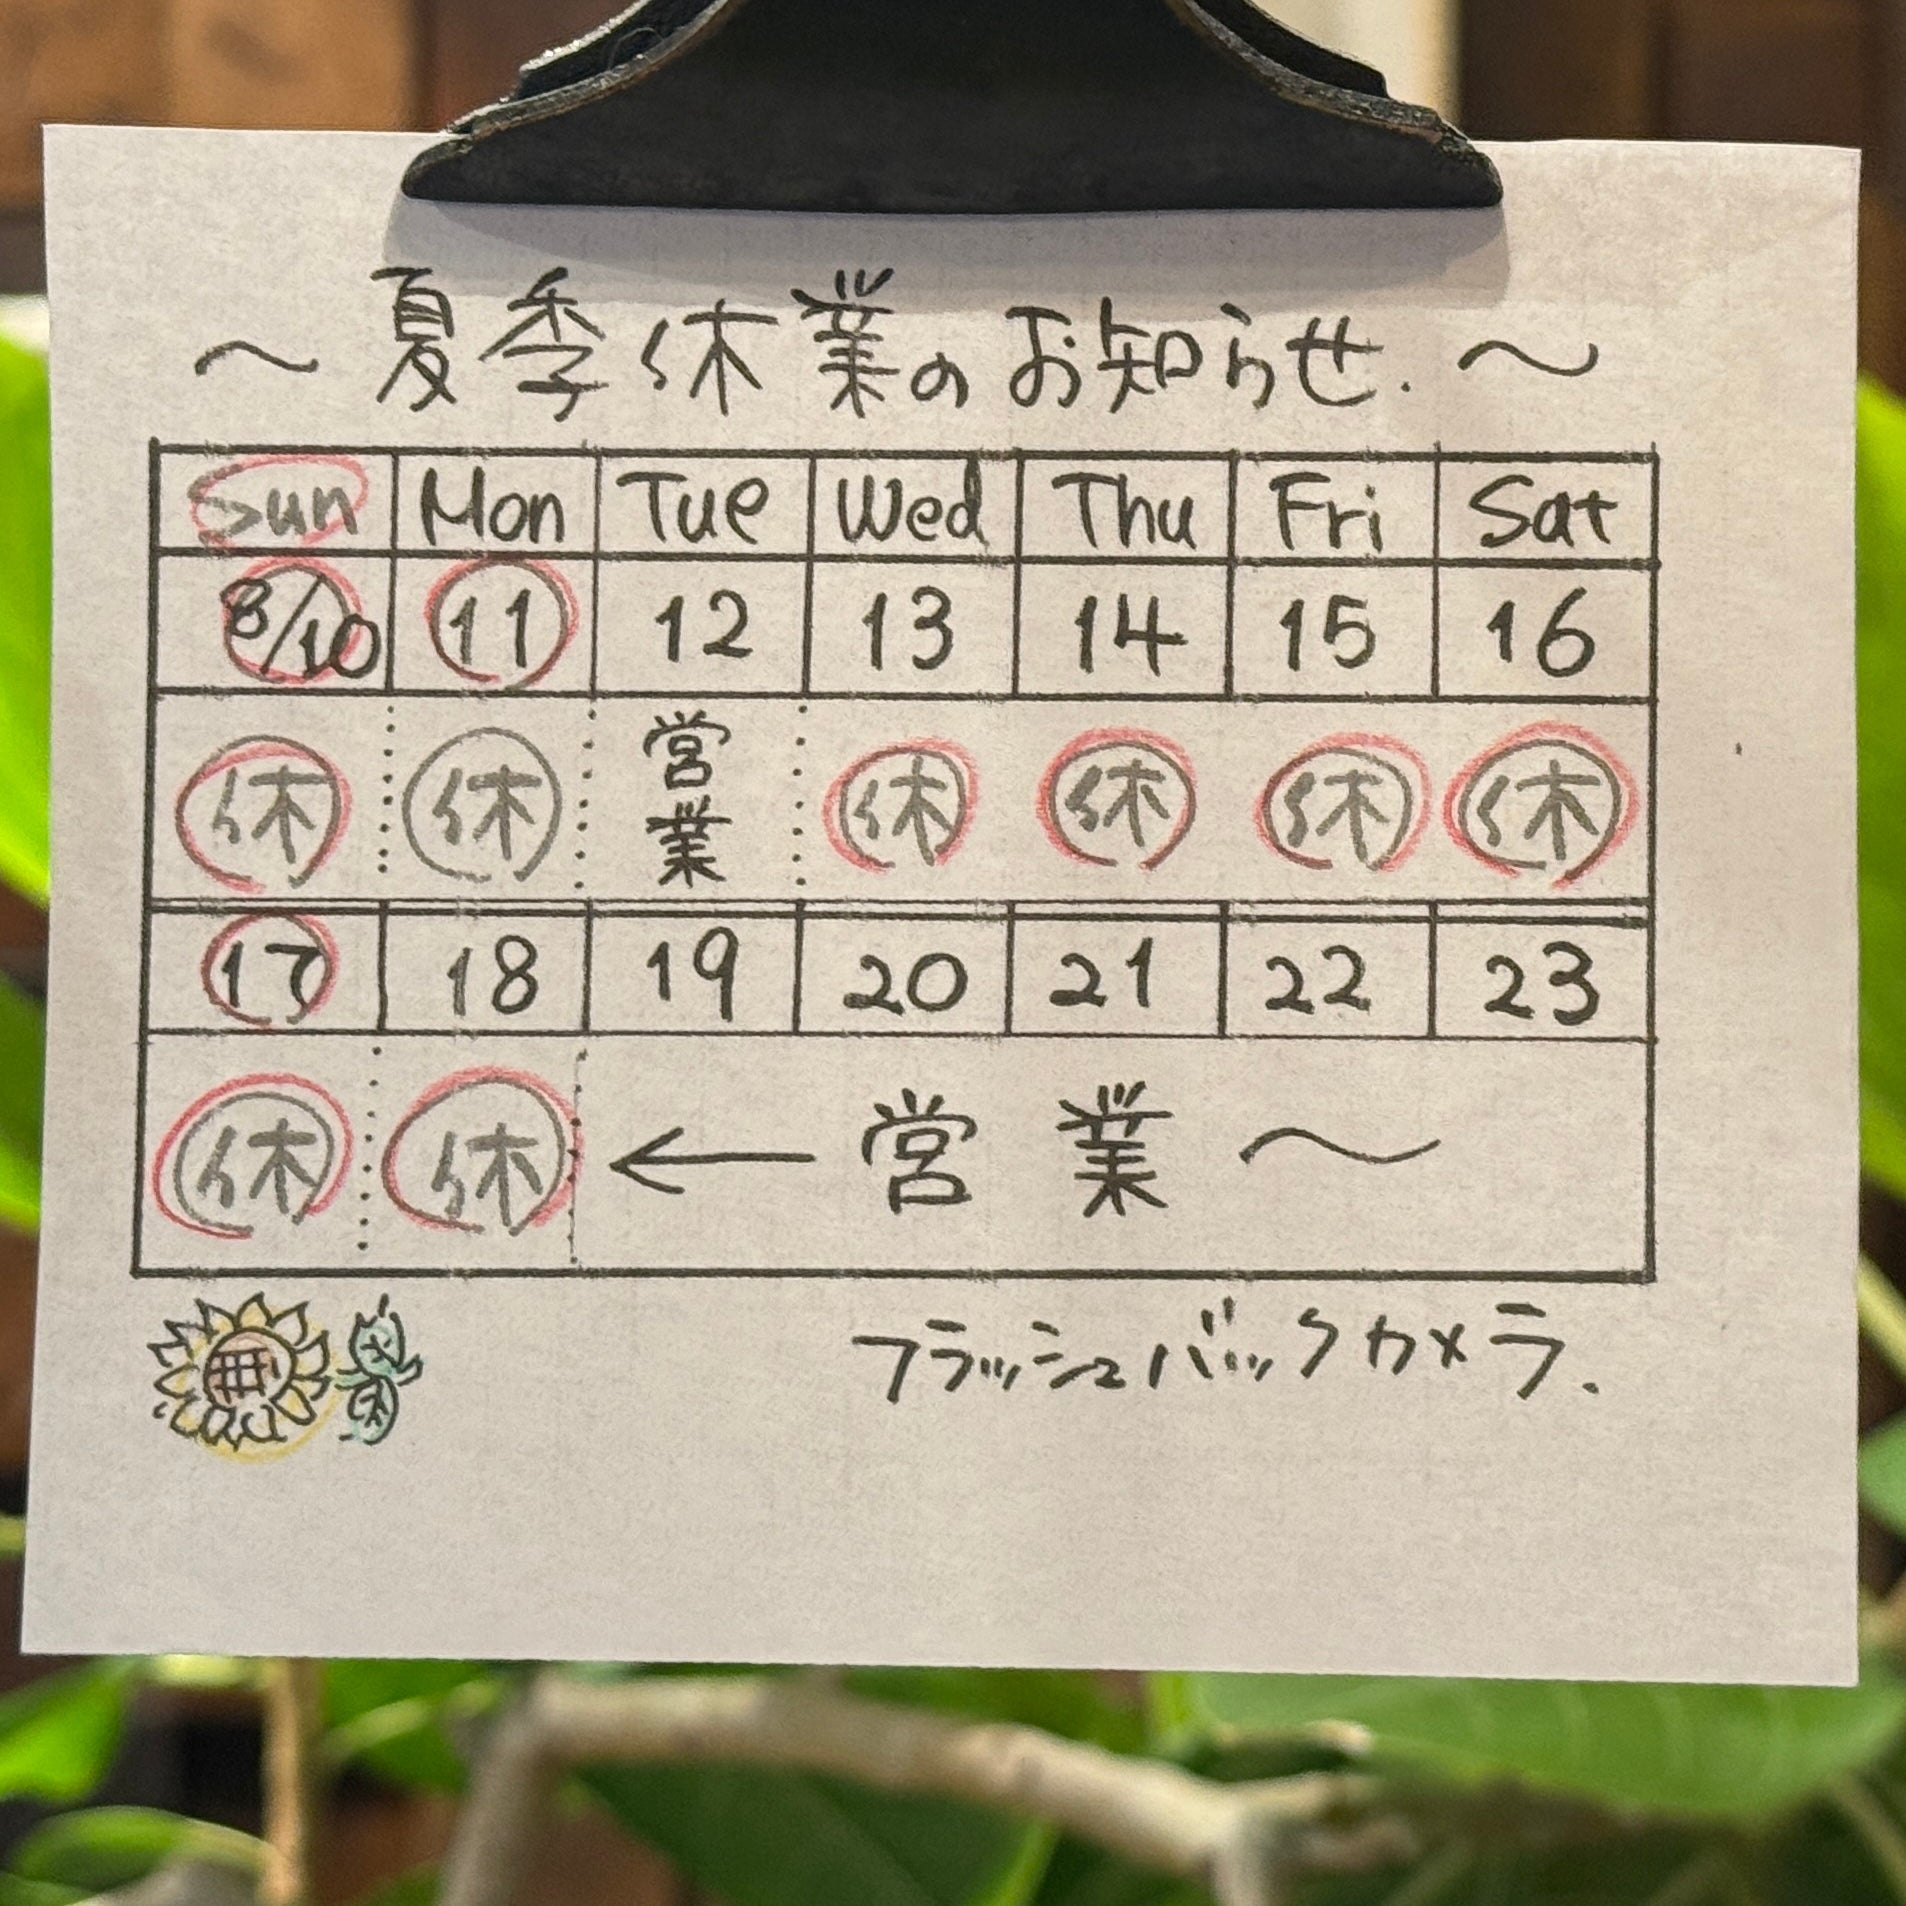 ～夏季休業のお知らせ.～
Sun Mon Tue Wed Thu Fri Sat
8/10 11 12 13 14 15 16
休 休 営業 休 休 休 休
17 18 19 20 21 22 23
休 休 ← 営業～
フラッシュバックカメラ.